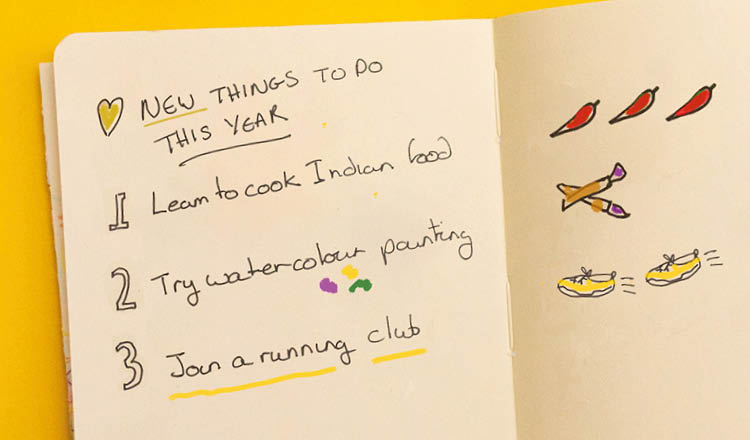 NEW THINGS TO DO
THIS YEAR
1 Learn to cook Indian food
2 Try watercolour painting
3 Join a running club